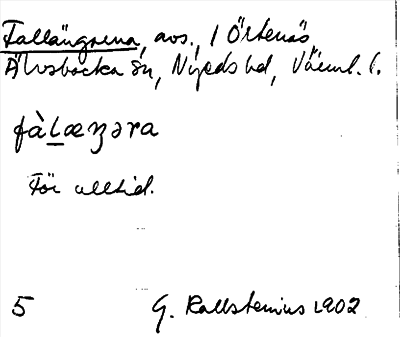 Fallängarna, avs., / Örtenäs
Älvsbacka sn, Nyeds hd, Värml. l.
fàlæŋəra
För alltid.
5 G. Kallstenius 1902